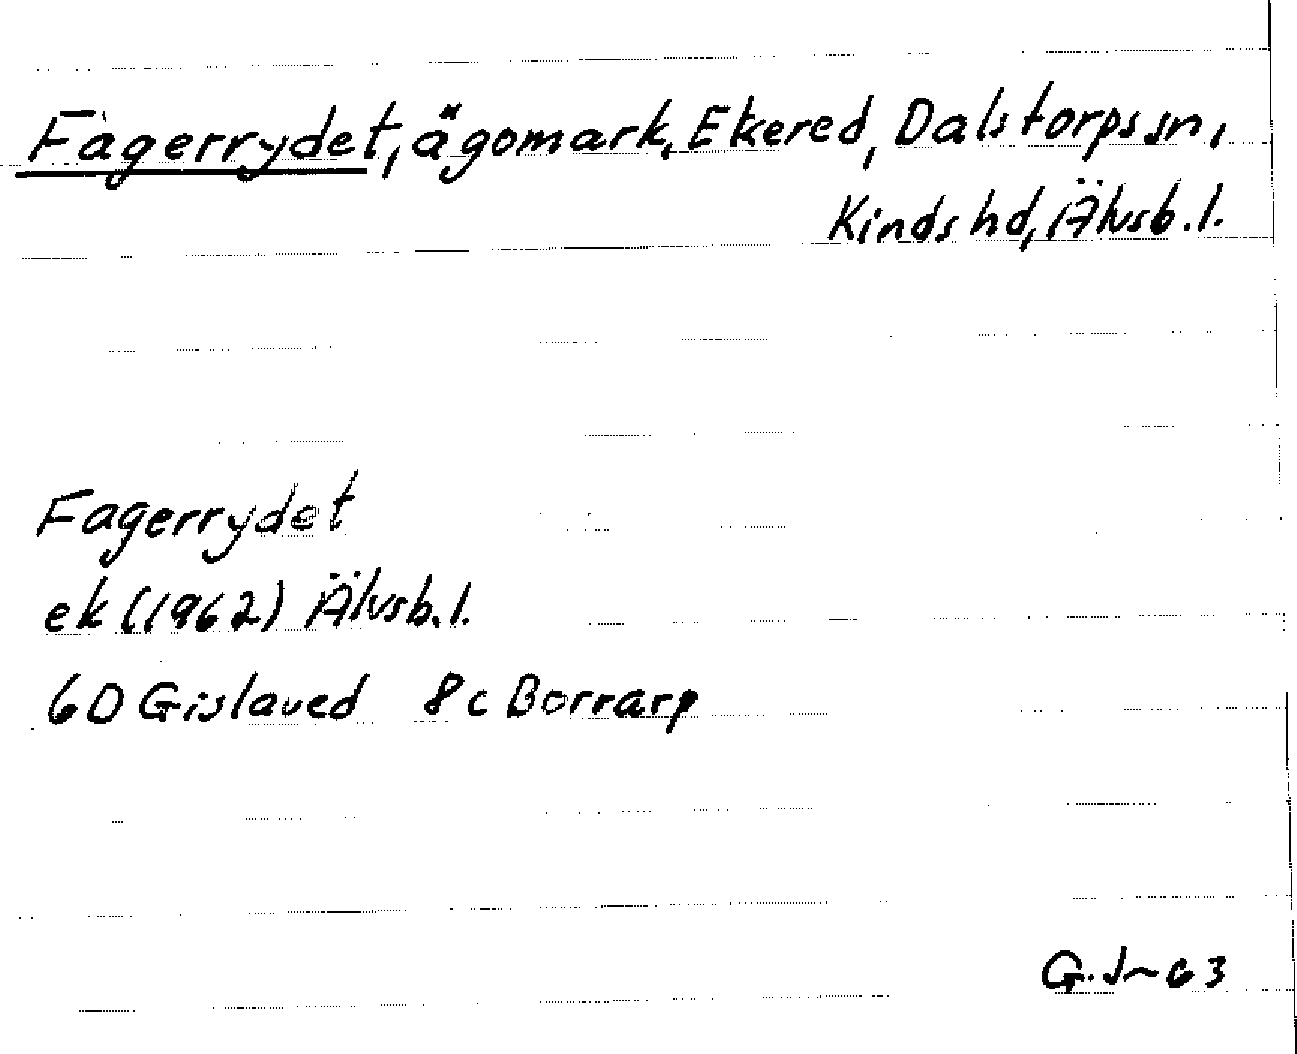 Fagerrydet, ägomark, Ekered, Dalstorps sn,
Kinds hd, Älvsb. l.
Fagerrydet
ek (1962) Älvsb. l.
6D Gislaved 8c Borrarp
G.J~63